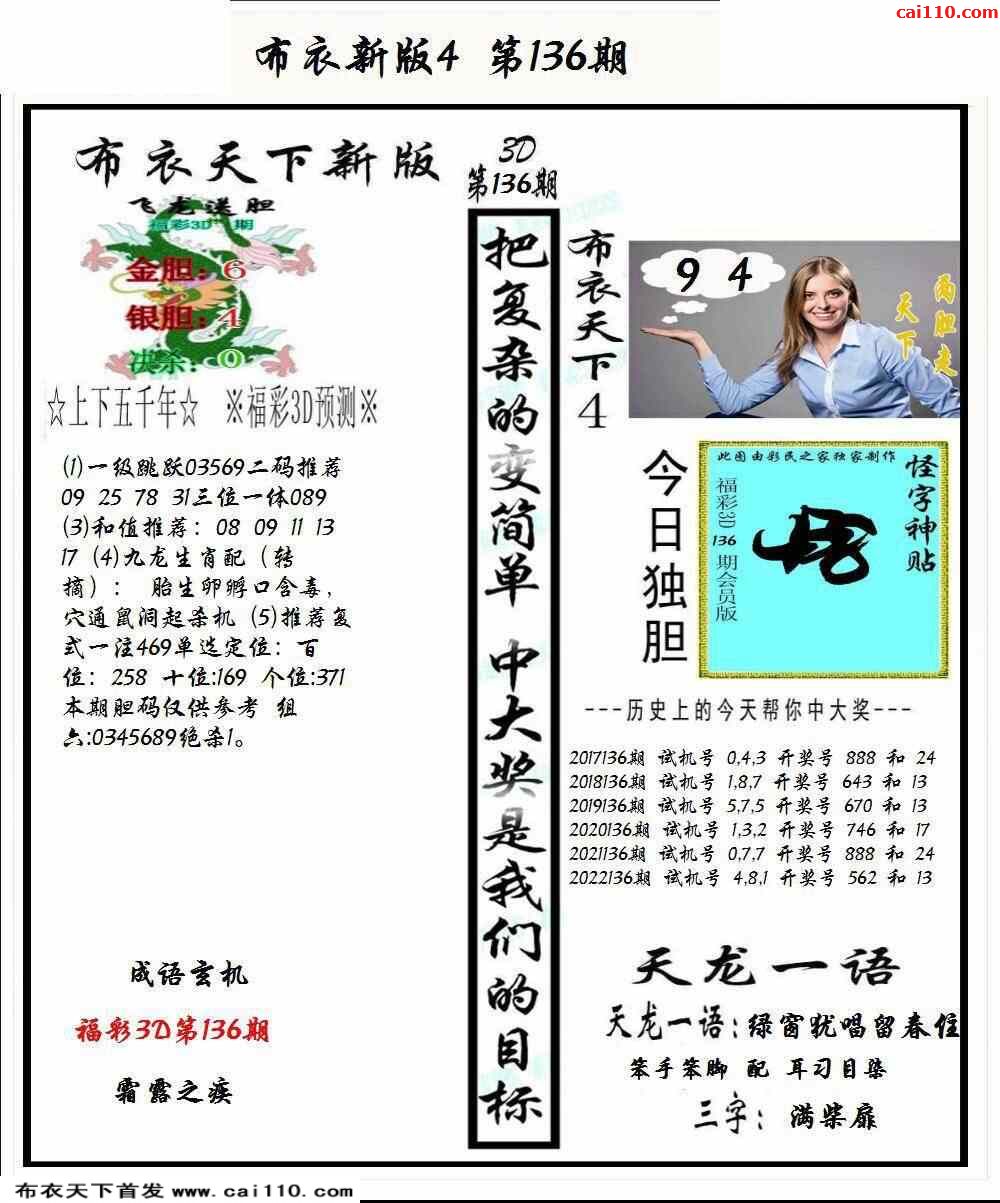 cai110.com
布衣新版4 第136期
布衣天下新版
飞龙送胆
福彩3D 期
金胆：6
银胆：4
决杀：0
☆上下五千年☆ ※福彩3D预测※
(1)一级跳跃03569二码推荐
09 25 78 31三位一体089
(3)和值推荐：08 09 11 13
17 (4)九龙生肖配（转
摘）： 胎生卵孵口含毒，
穴通鼠洞起杀机 (5)推荐复
式一注469单选定位：百
位：258 十位:169 个位:371
本期胆码仅供参考 组
六:0345689绝杀1。
成语玄机
福彩3D第136期
霜露之疾
3D
第136期
把复杂的变简单 中大奖是我们的目标
布衣天下4
9 4
两胆走
天下
今日独胆
此图由彩民之家独家制作
怪字神贴
福彩3D 136 期会员版
---历史上的今天帮你中大奖---
2017136期 试机号 0,4,3 开奖号 888 和 24
2018136期 试机号 1,8,7 开奖号 643 和 13
2019136期 试机号 5,7,5 开奖号 670 和 13
2020136期 试机号 1,3,2 开奖号 746 和 17
2021136期 试机号 0,7,7 开奖号 888 和 24
2022136期 试机号 4,8,1 开奖号 562 和 13
天龙一语
天龙一语:绿窗犹唱留春住
笨手笨脚 配 耳习目染
三字： 满柴扉
布衣天下首发 www.cai110.com